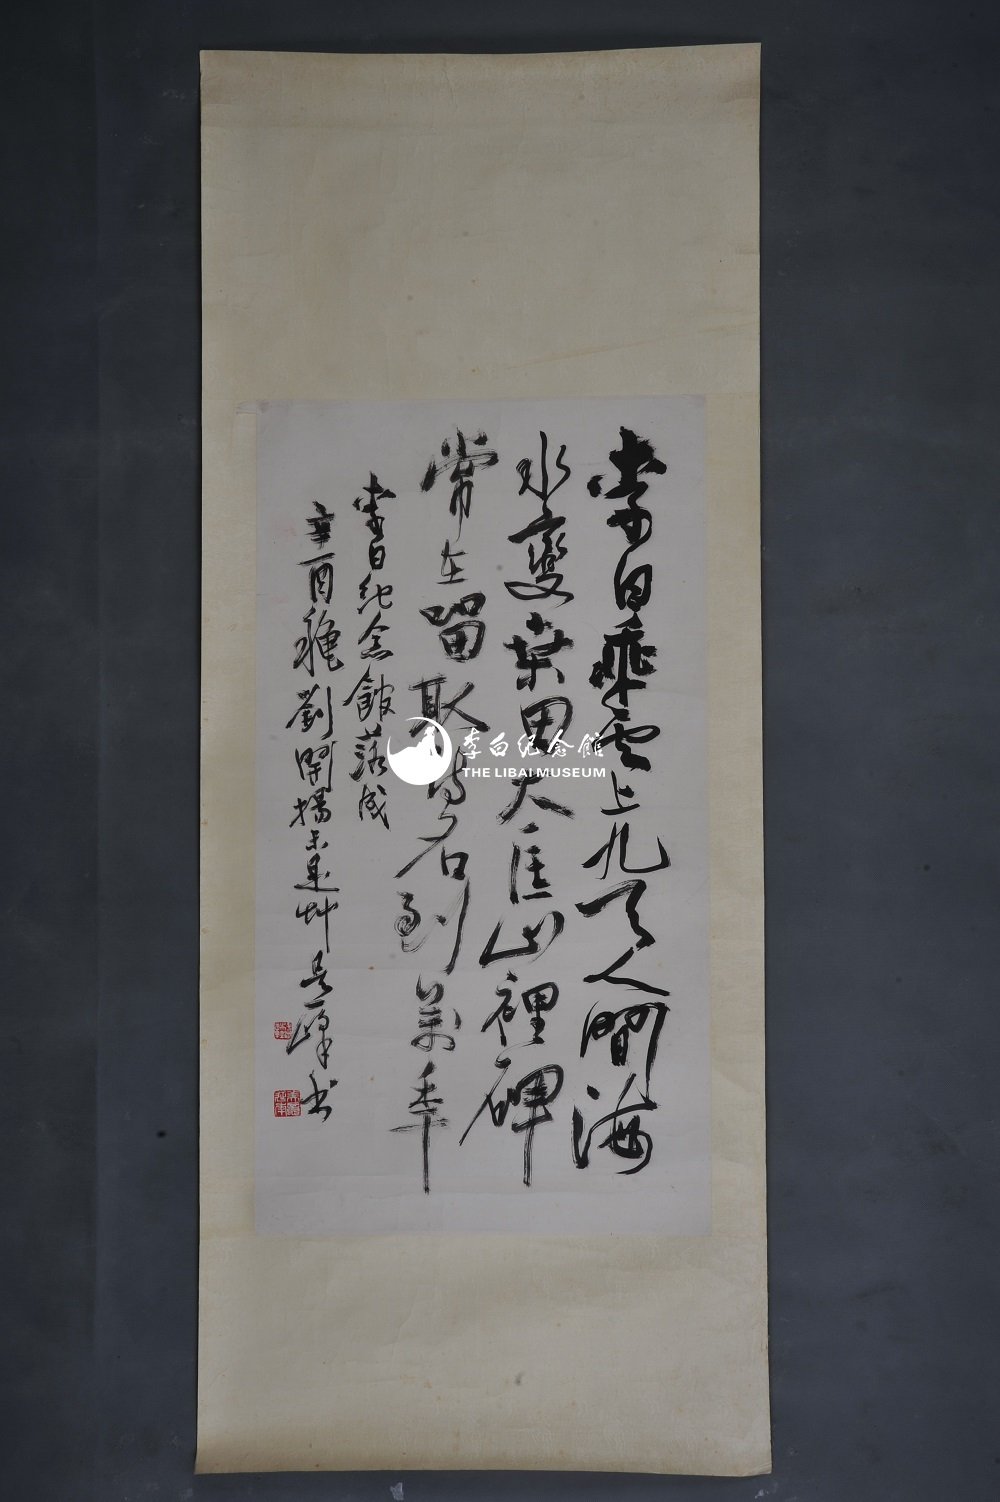 李白乘云上九天人間海
水變桑田大匡山裡碑
常在留取詩名到萬年
李白纪念館落成
辛酉穐劉開揚未是艸吴峰书
李白纪念館
THE LIBAI MUSEUM